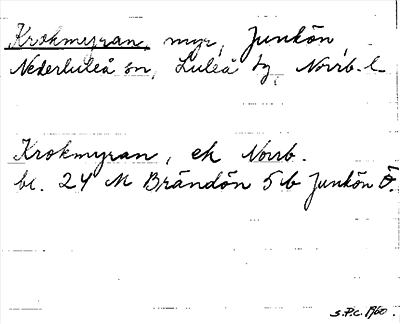 Krokmyran, myr, Junkön,
Nederluleå sn, Luleå tg, Norrb. l.
Krokmyran, ek Norrb.
bl. 24 M Brändön 5 b Junkön Ö.
S.P.C. 1960.